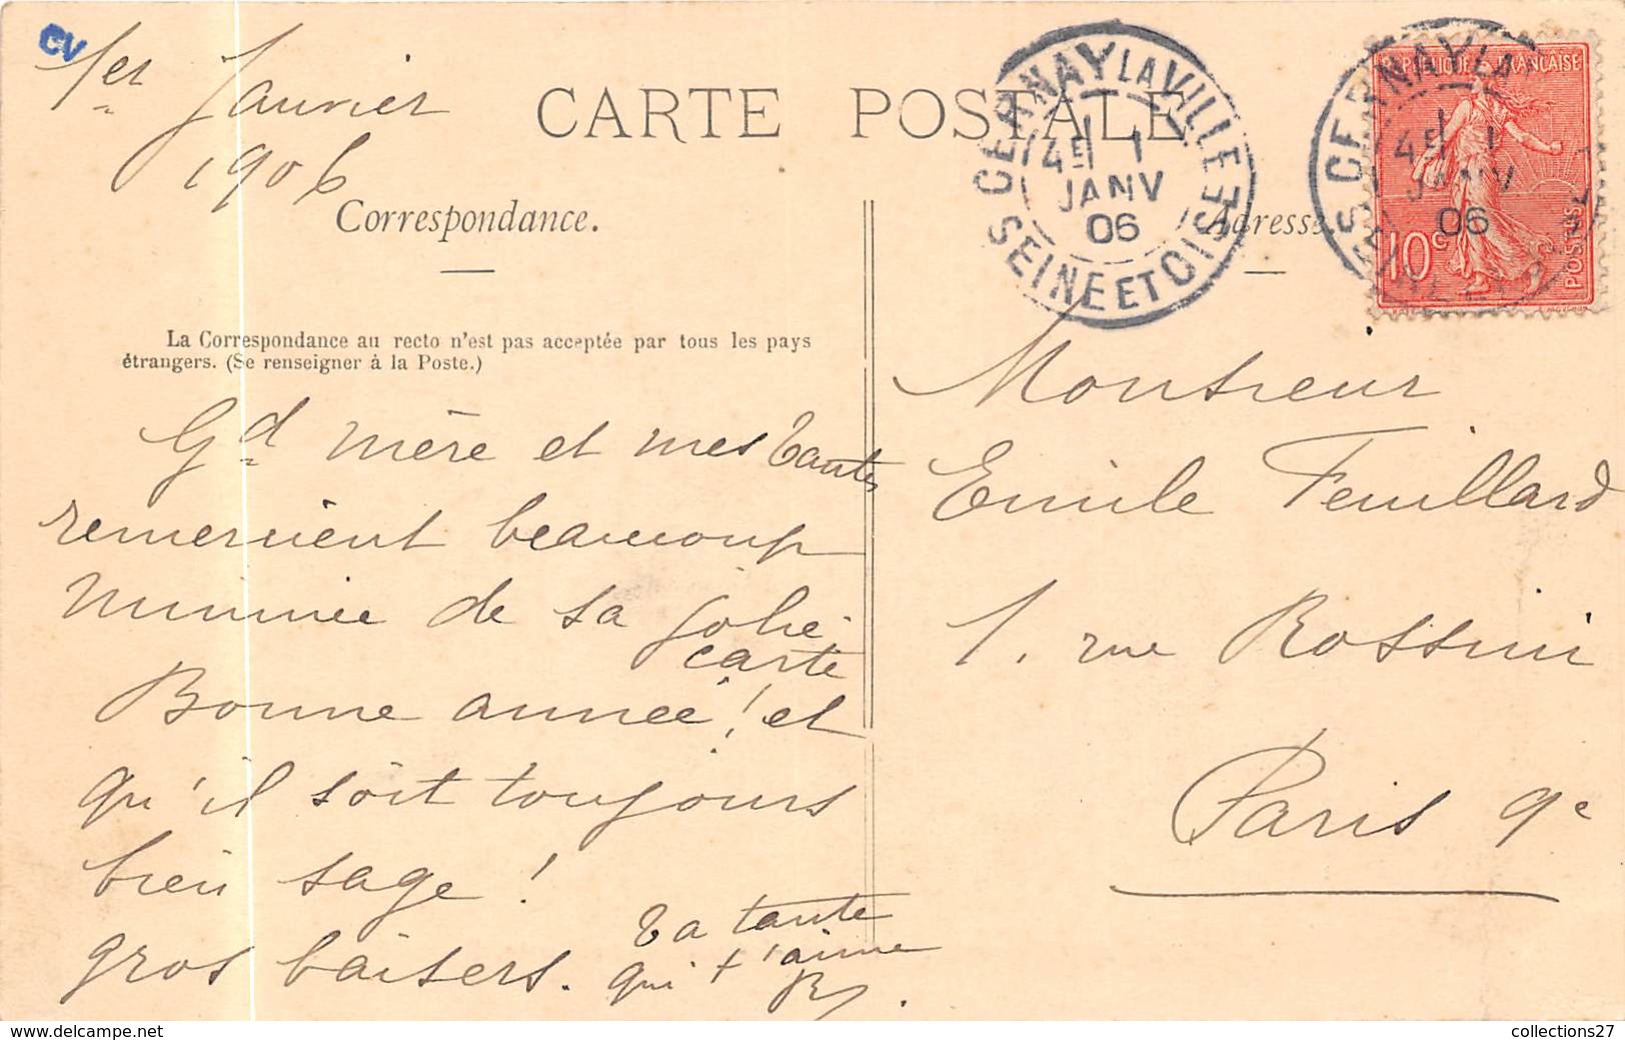 CV
1er Janvier
1906
CARTE POSTALE
Correspondance.
Adresse
La Correspondance au recto n'est pas acceptée par tous les pays
étrangers. (Se renseigner à la Poste.)
CERNAY LA VILLE
4E 1
JANV
06
SEINE ET OISE
CERNAY LA
4E 1
JANV
06
REPUBLIQUE FRANÇAISE
10c
POSTES
Gd mère et mes tantes
remercient beaucoup
Mimine de sa jolie
carte
Bonne année! et
qu'il soit toujours
bien sage!
gros baisers.
ta tante
qui t'aime
Monsieur
Emile Feuillard
1, rue Rossini
Paris 9e
collections27